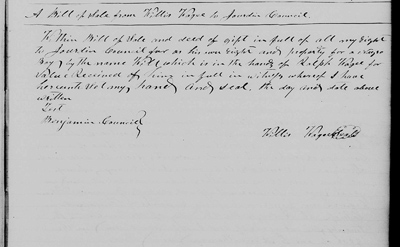 A Bill of Sale from Willis Hague to Jourdin Council
Within Bill of Sale and deed of gift in full of all my Right
to Jourdin Council for as his own Right and property for a Negro
Boy by the name Will, which is in the hands of Ralph Hague for
Value Received of being in full in witness whereof I have
hereunto Set my hand and Seal. the day and date above
written
Test
Benjamin Council
Willis Hague Seal